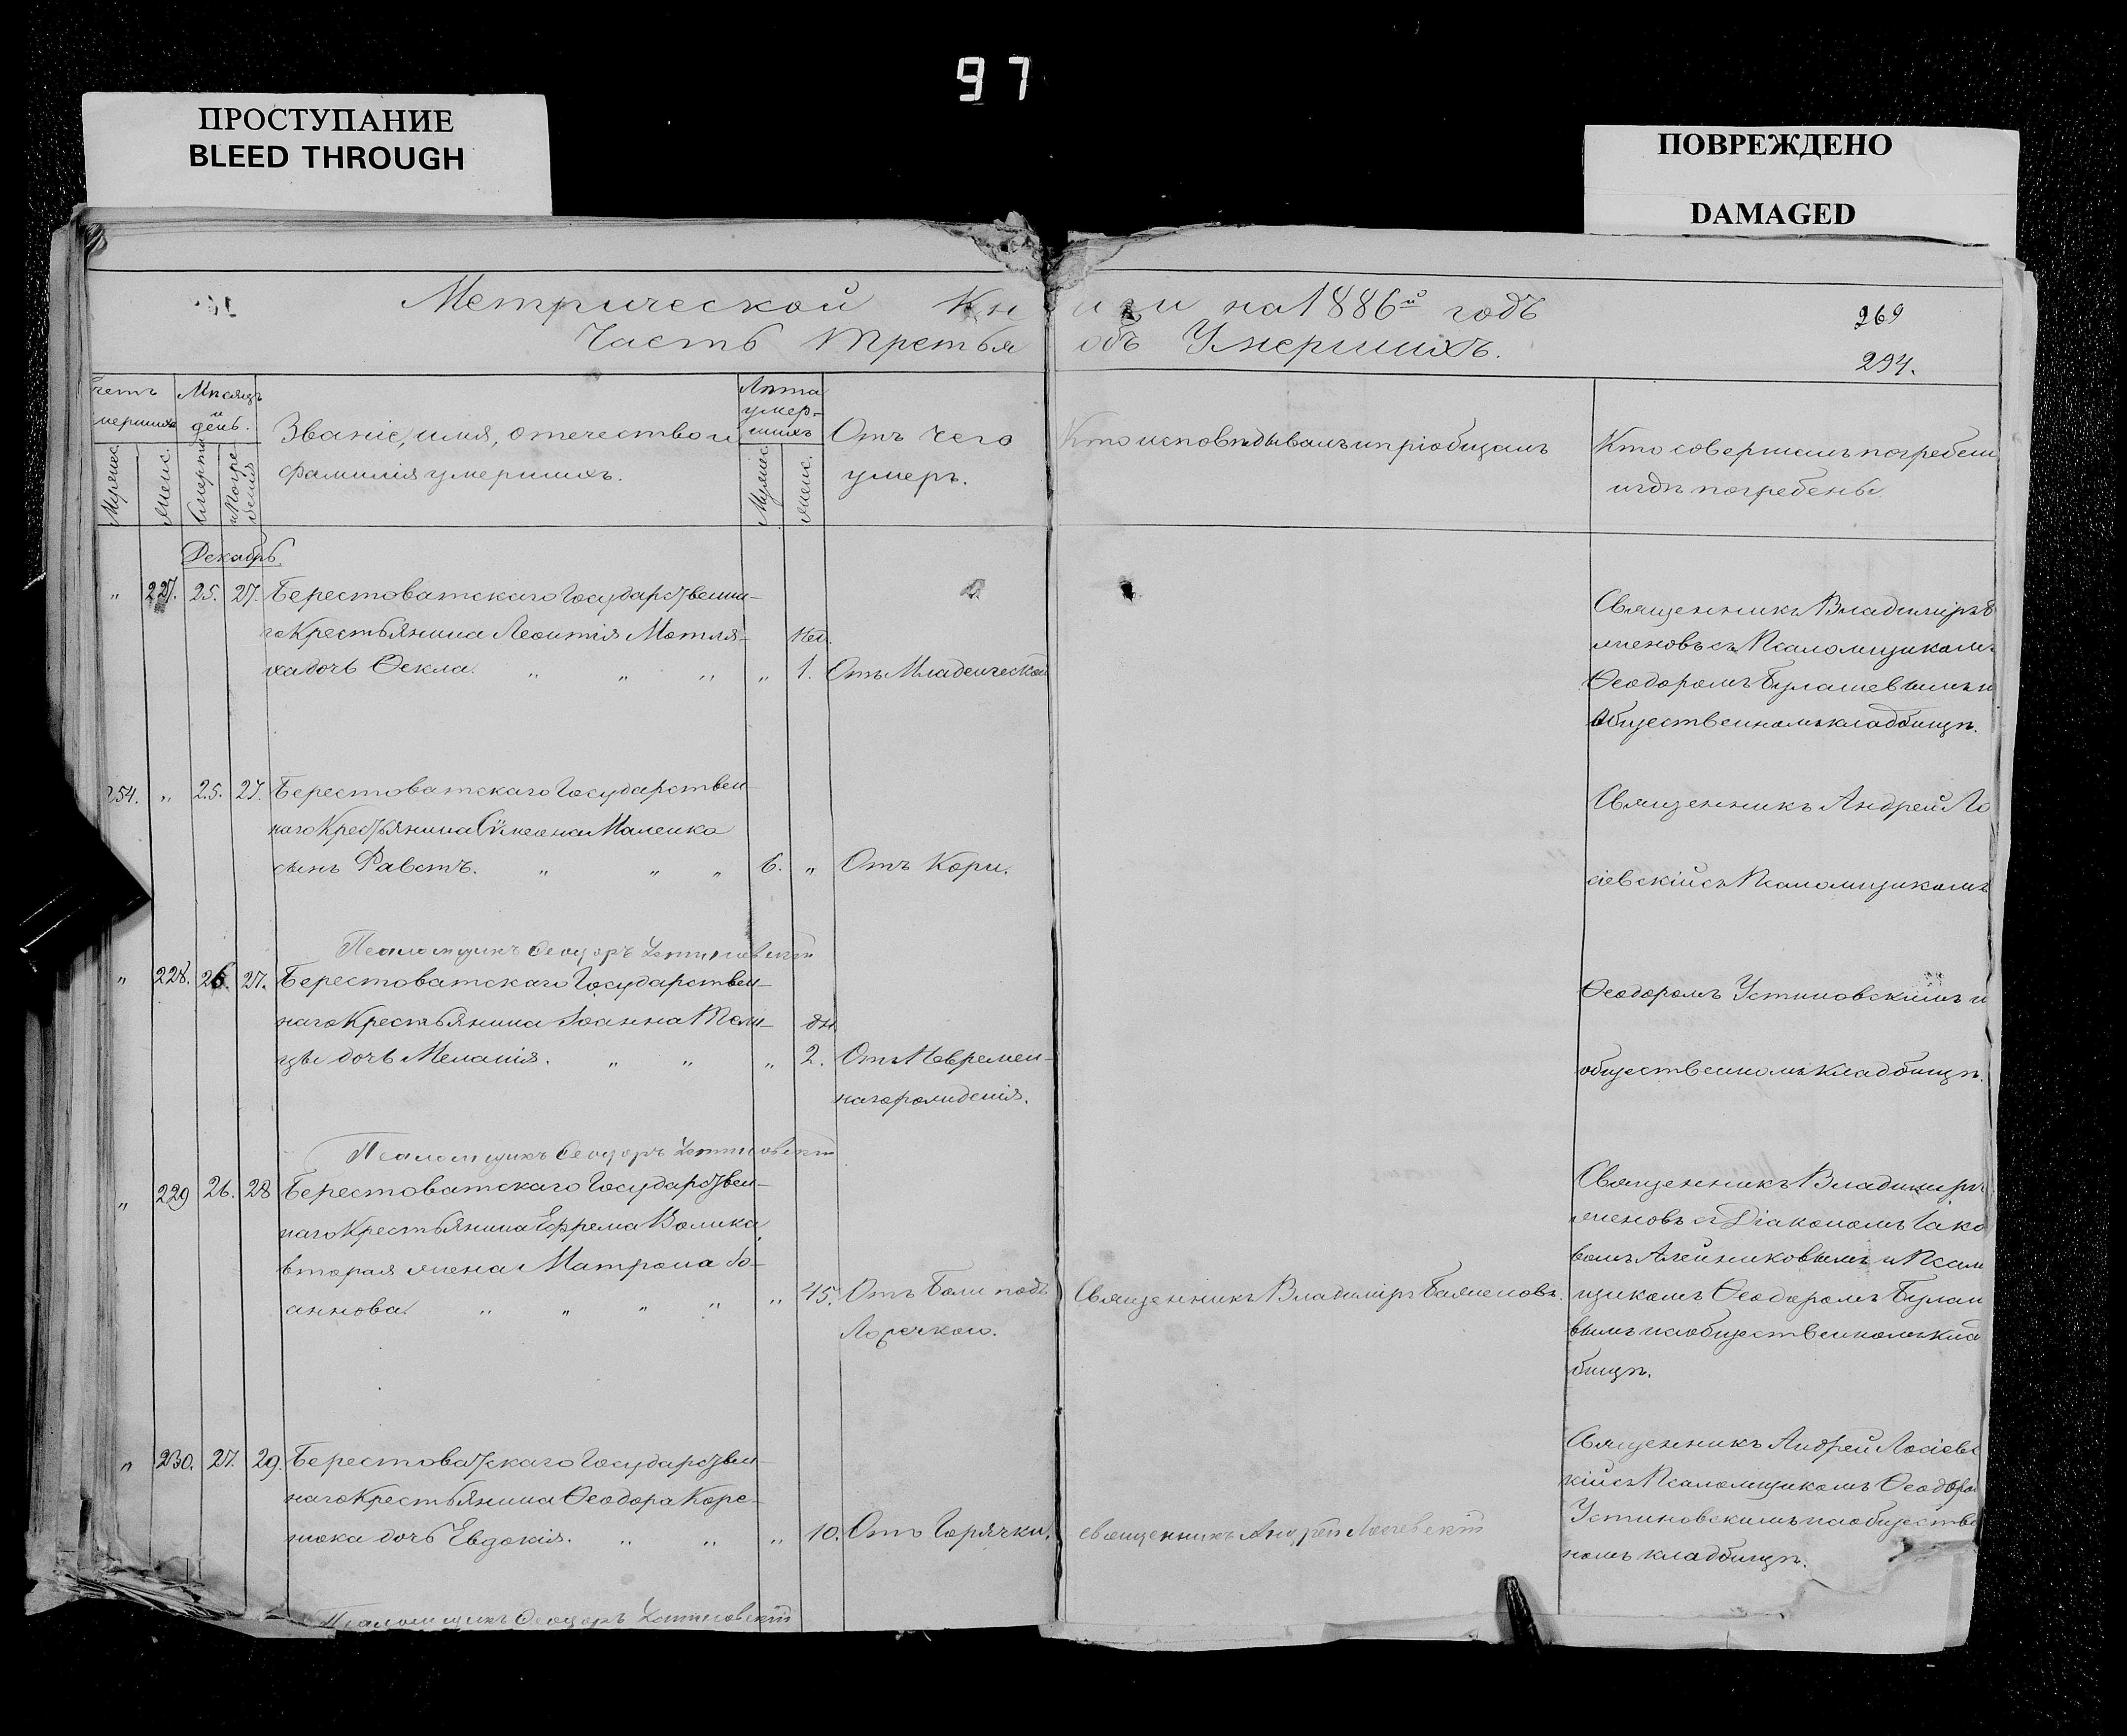 97
ПРОСТУПАНИЕ
BLEED THROUGH
ПОВРЕЖДЕНО
DAMAGED
Метрической Книги на 1886й годъ
269
Часть третья объ Умершихъ.
294.
Счетъ умершихъ
Мѣсяцъ и день.
Званіе, имя, отечество и фамилія умершихъ.
Лѣта умер-шихъ
Отъ чего умеръ.
Кто исповѣдывалъ и пріобщалъ
Кто совершалъ погребеніе и гдѣ погребены
Мужес.
Женс.
Смерти
Погре-бенія
Мужес
Женс.
Декабрь.
" 227. 25. 27. Берестоватскаго Государственна-
го Крестьянина Леонтія Мотля-
ха дочь Ѳекла. " " " " нед. 1. Отъ Младенческой
Священникъ Владиміръ Б
женовъ съ Псаломщикомъ
Ѳеодоромъ Булашевымъ н
общественномъ кладбищѣ.
254. " 25. 27. Берестоватскаго Государствен-
наго Крестьянина Сѵмеона Маленко
сынъ Фавстъ. " " " 6. " Отъ Кори.
Священникъ Андрей Ло
сіевскій съ Псаломщикомъ
Ѳеодоромъ Устиновскимъ н
общественномъ кладбищѣ.
Псаломщикъ Ѳеодоръ Устиновскій
" 228. 26. 27. Берестоватскаго Государствен-
наго Крестьянина Іоанна
цы дочь Меланія. " " " дн. 2. Отъ Невремен-
наго рожденія.
Псаломщикъ Ѳеодоръ Устиновскій
" 229 26. 28 Берестоватскаго Государствен-
наго Крестьянина Ефрема Волика
вторая жена Матрона Іо-
аннова. " " " " " 45. Отъ Боли подъ
Ложечкою.
Священникъ Владиміръ Баженовъ.
Священникъ Владиміръ
женовъ съ Діакономъ Іако
вомъ Алейниковымъ и Псал
щикомъ Ѳеодоромъ Булаш
вымъ на общественномъ клад
бищѣ.
" 230. 27. 29. Берестоватскаго Государствен-
наго Крестьянина Ѳеодора Коре-
нюка дочь Евдокія. " " " 10. Отъ Горячки.
священникъ Андрей Лосіевскій
Священникъ Андрей Лосіевс
кій съ Псаломщикомъ Ѳеодоро
Устиновскимъ на обществе
номъ кладбищѣ.
Псаломщикъ Ѳеодоръ Устиновскій